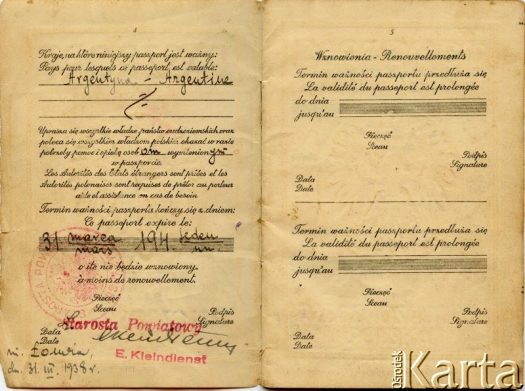 4
Kraje, na które niniejszy paszport jest ważny:
Pays pour lesquels ce passeport est valable:
Argentyna - Argentine
Uprasza się wszystkie władze państw cudzoziemskich, oraz
poleca się wszystkim władzom polskim okazać w razie
potrzeby pomoc i opiekę osobom wymienionym
w paszporcie.
Les Autorités des Etats étrangers sont priées et les
Autorités polonaises sont requises de prêter au porteur
aide et assistance en cas de besoin
Termin ważności paszportu kończy się z dniem:
Ce passeport expire le:
31 marca 1941 jeden
mars un
o ile nie będzie wznowiony.
à moins de renouvellement.
Pieczęć
Sceau
Podpis
Signature
Starosta Powiatowy
Data
Date
E. Kleindienst
m. Łomża,
dn. 31. III. 1938 r.
5
Wznowienia - Renouvellements
Termin ważności paszportu przedłuża się
La validité du passeport est prolongée
do dnia
jusqu'au
Pieczęć
Sceau
Podpis
Signature
Data
Date
Termin ważności paszportu przedłuża się
La validité du passeport est prolongée
do dnia
jusqu'au
Pieczęć
Sceau
Podpis
Signature
Data
Date
Ośrodek
Karta